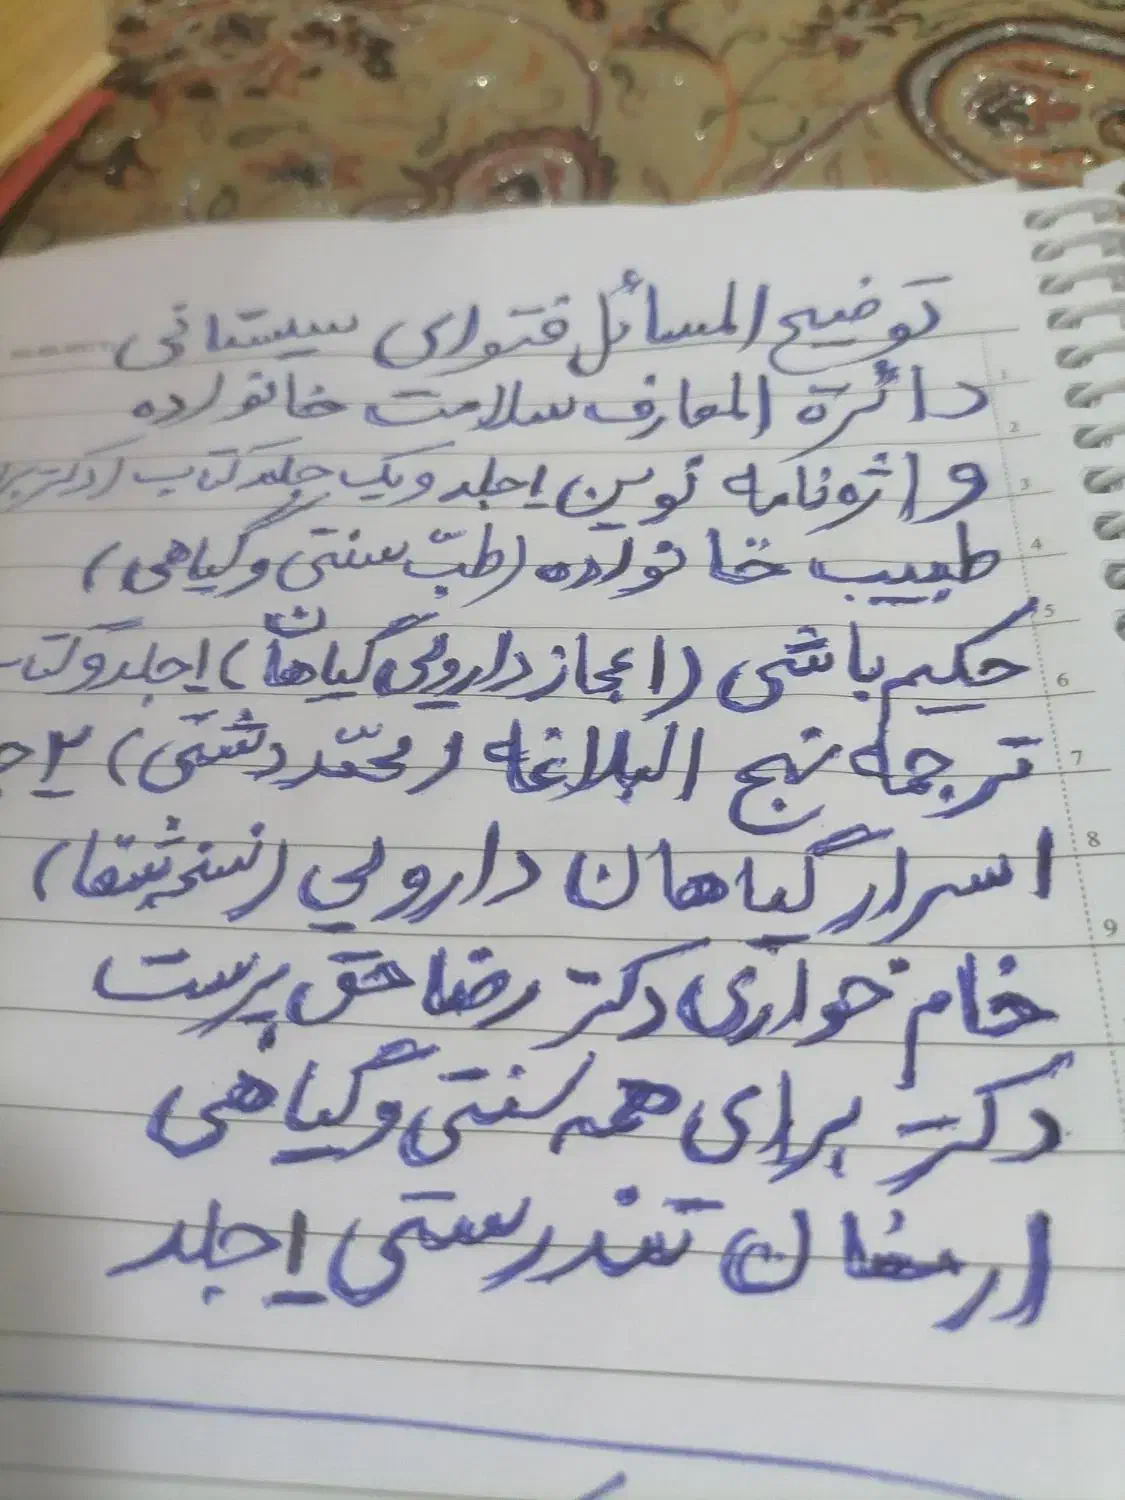 توضیح المسائل فتوای سیستانی
دائرة المعارف سلامت خانواده
واژه‌نامه نوین ۱جلد ویک جلد کتاب (دکتر
طبیب خانواده (طبّ سنتی و گیاهی)
حکیم باشی (اعجاز داروئی گیاهان) ۱جلد
ترجمه نهج البلاغه (محمّد دشتی) ۲
اسرار گیاهان داروئی (نسخه شفا)
خام خواری دکتر رضا حق پرست
دکتر برای همه سنتی و گیاهی
ارمغان تندرستی ۱جلد
1
2
3
4
5
6
7
8
9